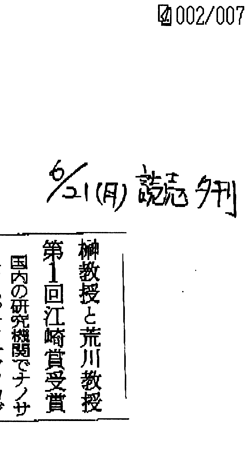 002/007
6/21(月) 読売 夕刊
榊教授と荒川教授
第1回江崎賞受賞
国内の研究機関でナノサ